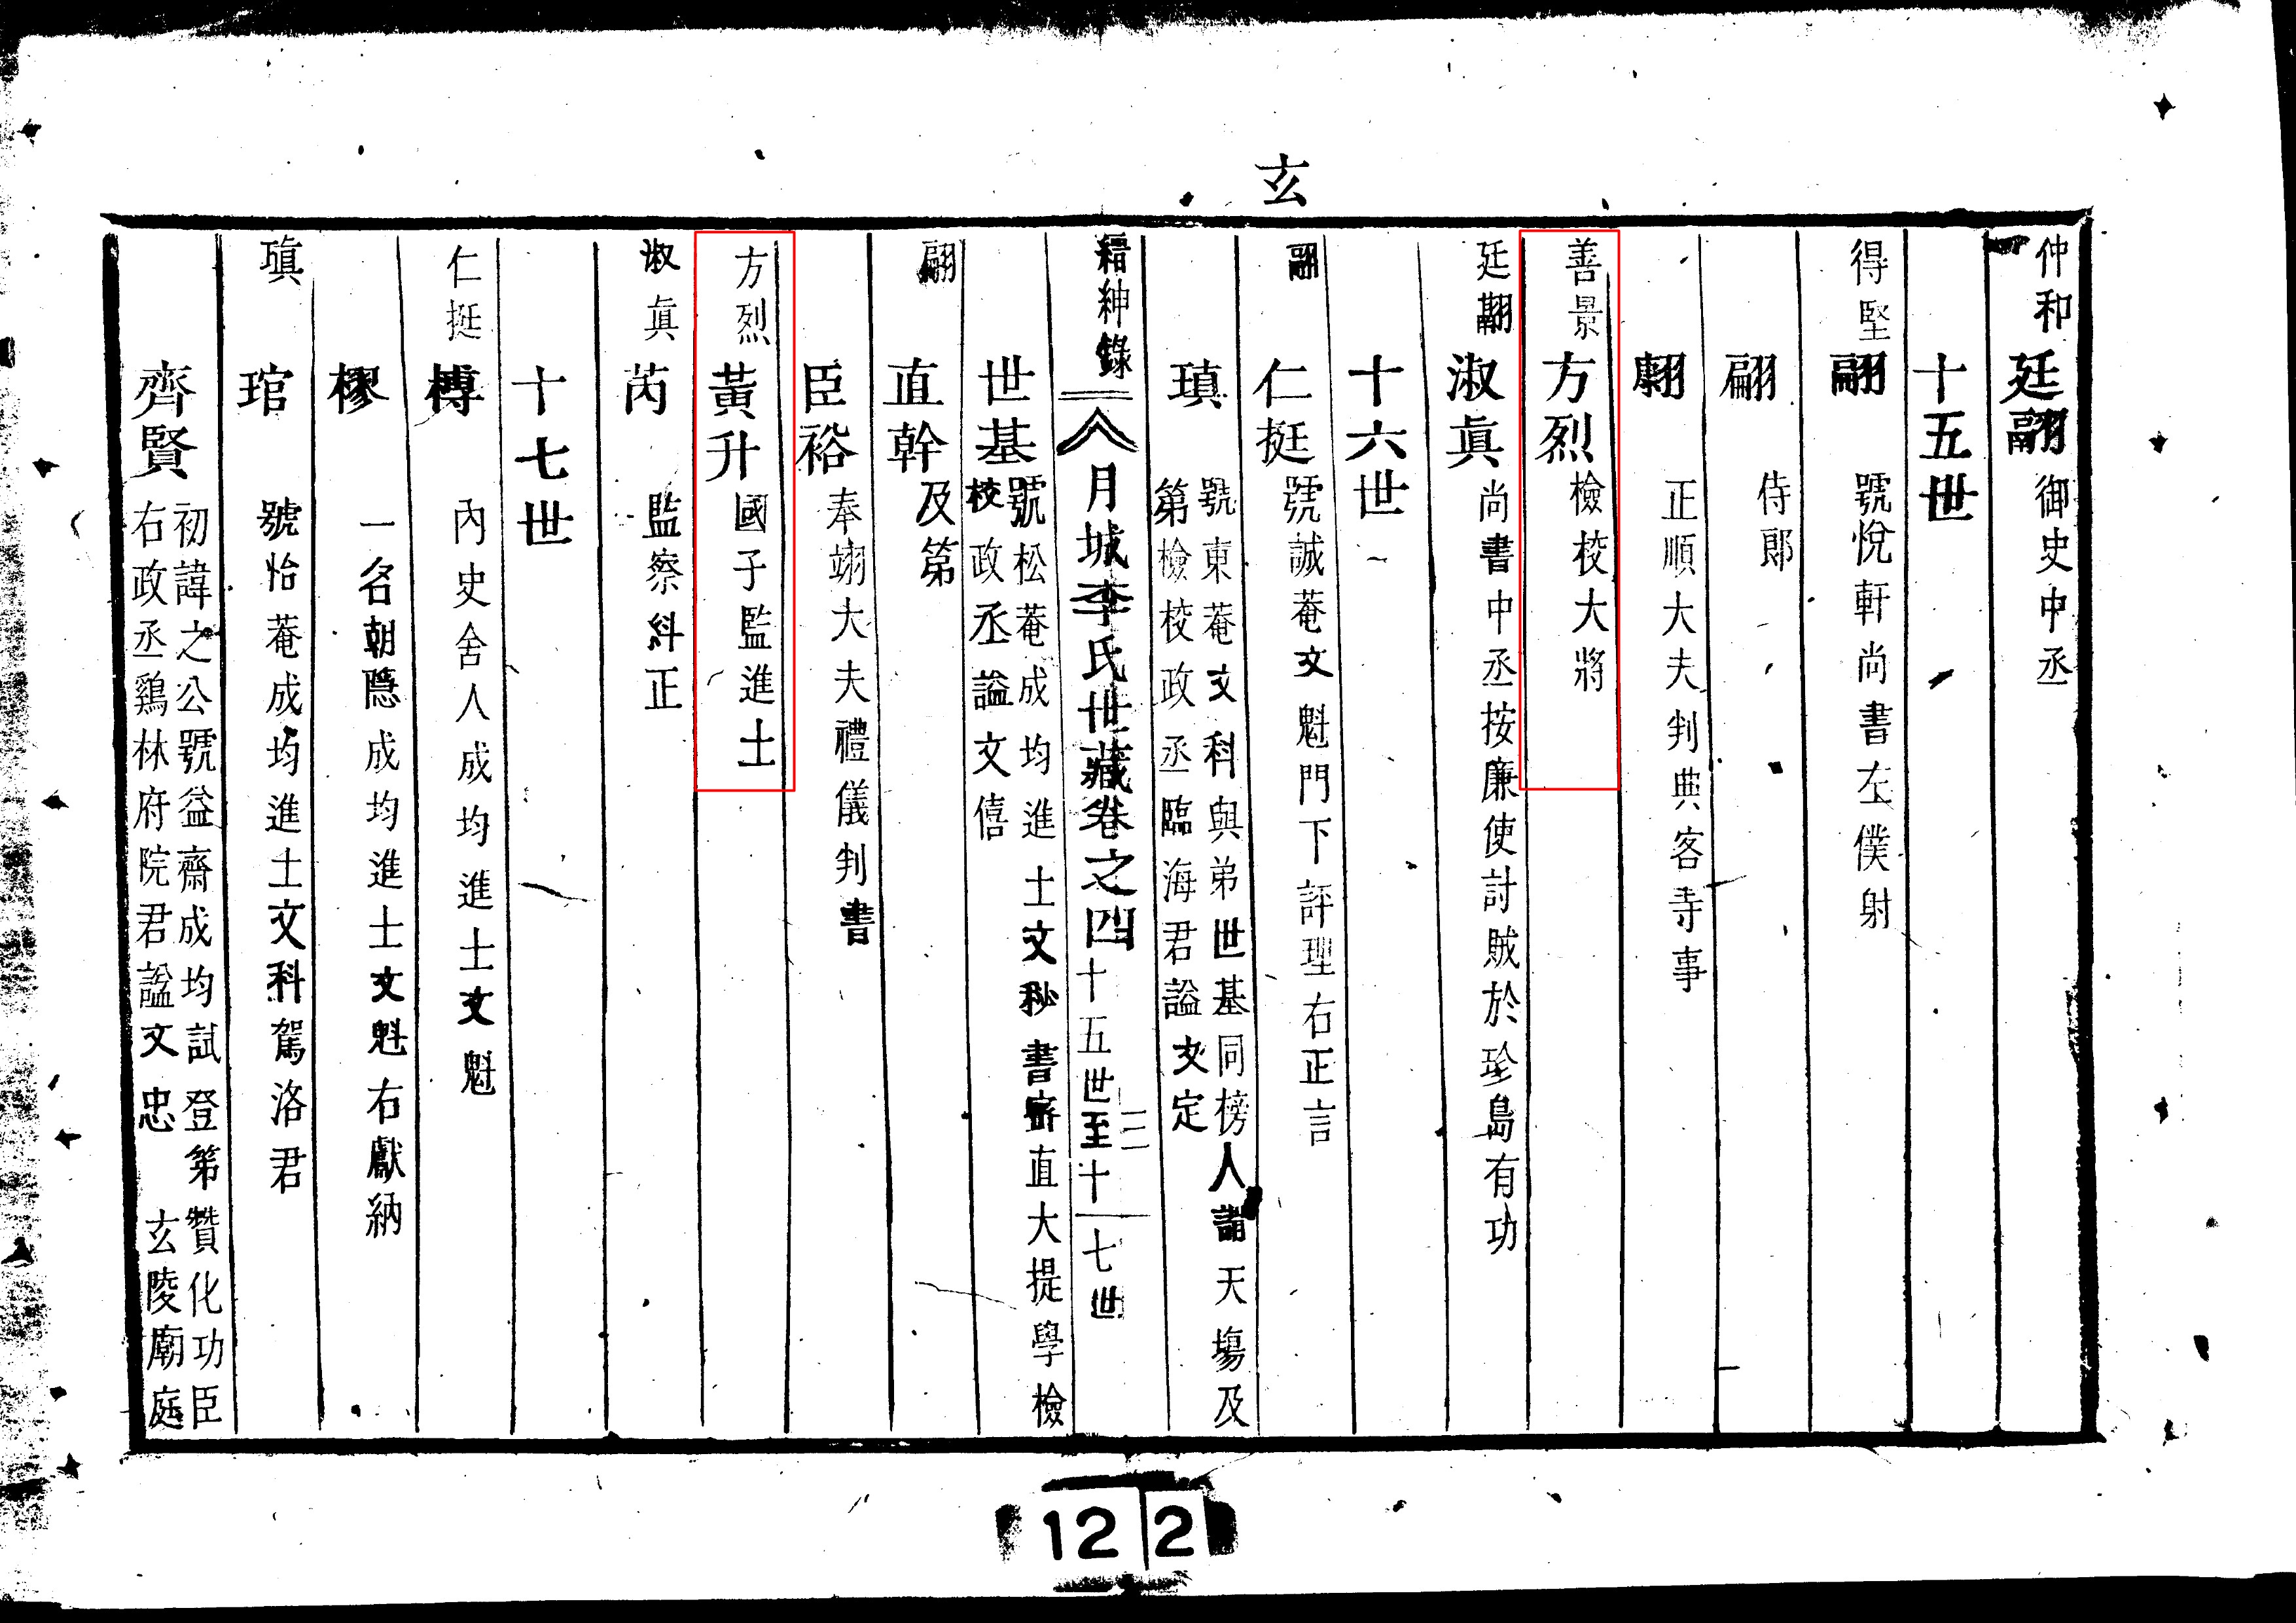 玄
仲和 廷翮 御史中丞
十五世
得堅 翮 號悅軒尚書左僕射
翩 侍郎
翱 正順大夫判典客寺事
善景 方烈 檢校大將
廷翮 淑眞 尚書中丞按廉使討賊於珍島有功
十六世
翮 仁挺 號誠菴文魁門下評理右正言
瑱 號東菴文科與弟世基同榜人謂天塲及
第檢校政丞臨海君謚文定
縉紳錄 月城李氏世藏卷之四 十五世至十七世 二
世基 號松菴成均進士文秘書寶直大提學檢
校政丞謚文僖
翩 直幹 及第
臣裕 奉翊大夫禮儀判書
方烈 黃升 國子監進士
淑眞 芮 監察糾正
十七世
仁挺 榑 內史舍人成均進士文魁
樛 一名朝隱成均進士文魁右獻納
瑱 琯 號怡菴成均進士文科駕洛君
齊賢 初諱之公號益齋成均試登第贊化功臣
右政丞鷄林府院君謚文忠 玄陵廟庭
12 2